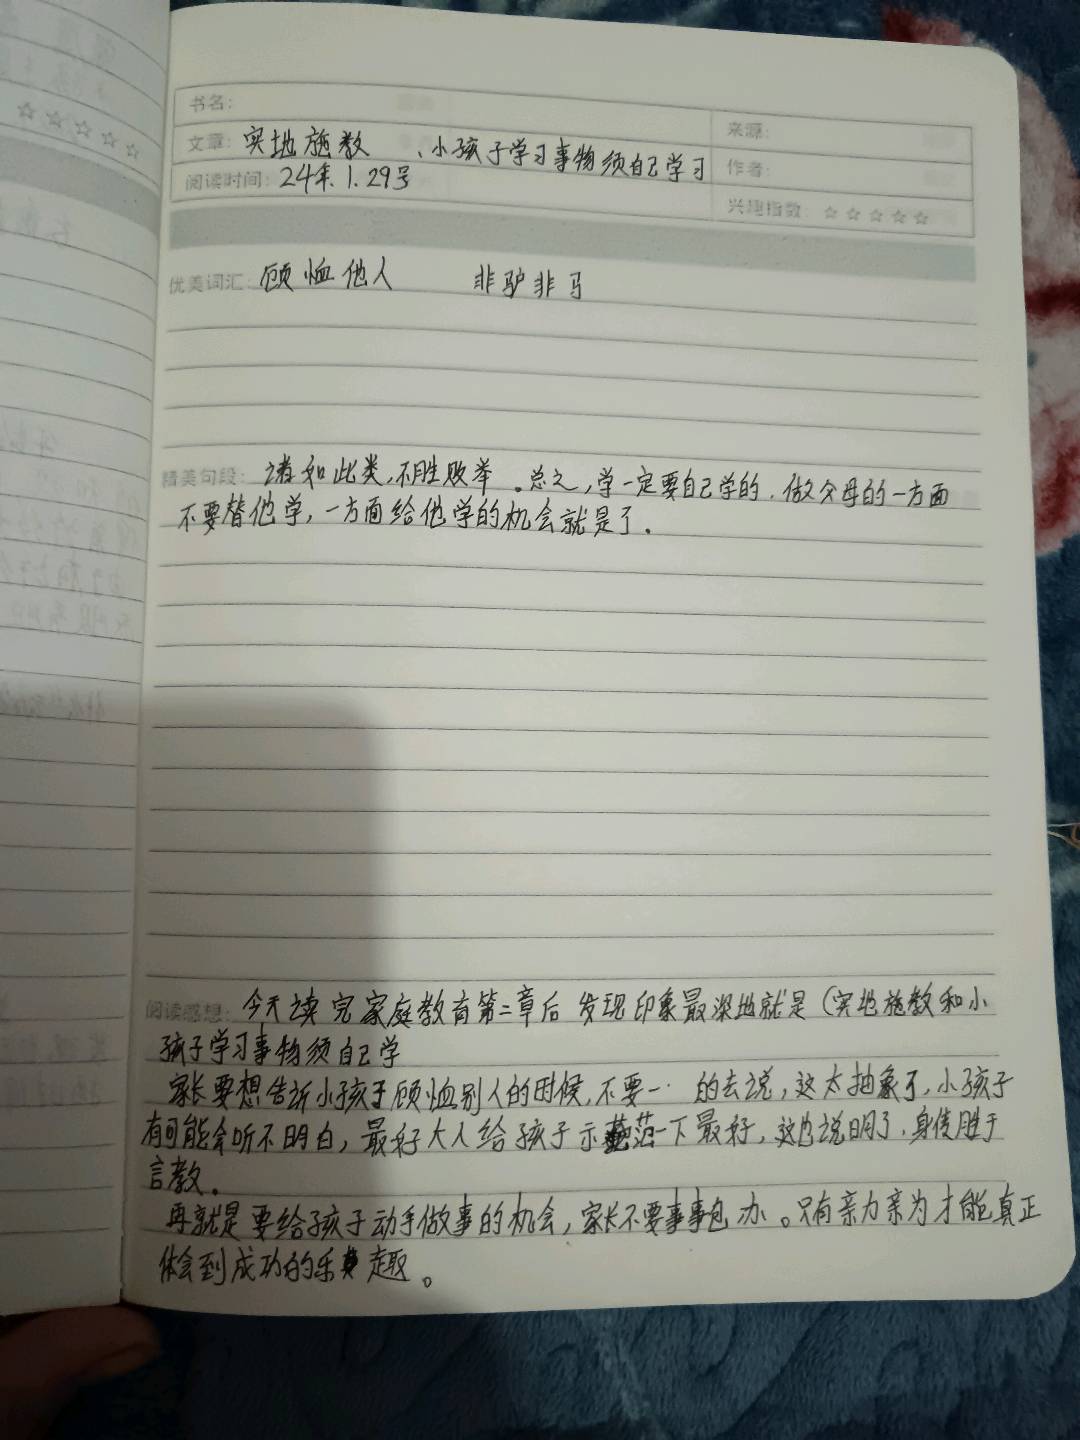 书名:
来源:
文章: 实地施教 、小孩子学习事物须自己学习
作者:
阅读时间: 24年.1.29号
兴趣指数: ☆☆☆☆☆
优美词汇: 顾恤他人 非驴非马
精美句段: 诸如此类,不胜败举。总之,学一定要自己学的.做父母的一方面
不要替他学,一方面给他学的机会就是了.
阅读感想: 今天读完家庭教育第二章后 发现印象最深地就是(实地施教和小
孩子学习事物须自己学
家长要想告诉小孩子顾恤别人的时候,不要一·的去说,这太抽象了,小孩子
有可能会听不明白,最好大人给孩子示范一下最好,这也说明了.身传胜于
言教。
再就是要给孩子动手做事的机会,家长不要事事包办。只有亲力亲为才能真正
体会到成功的乐趣。